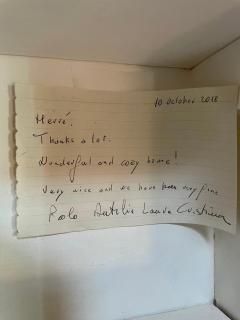 10 October 2018
Merré.
Thanks a lot.
Wonderful and cosy home!
Very nice and we have been very fine
Paolo Laura Cristina